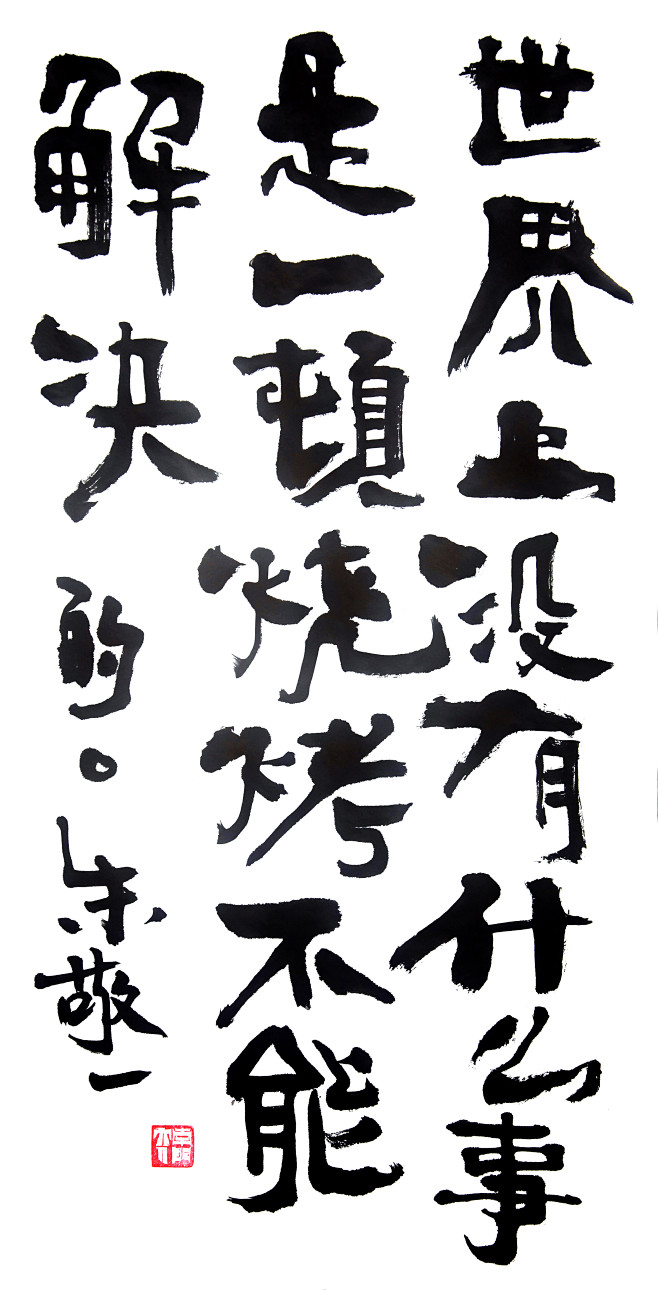 世界上没有什么事
是一顿烧烤不能
解决的。朱敬一